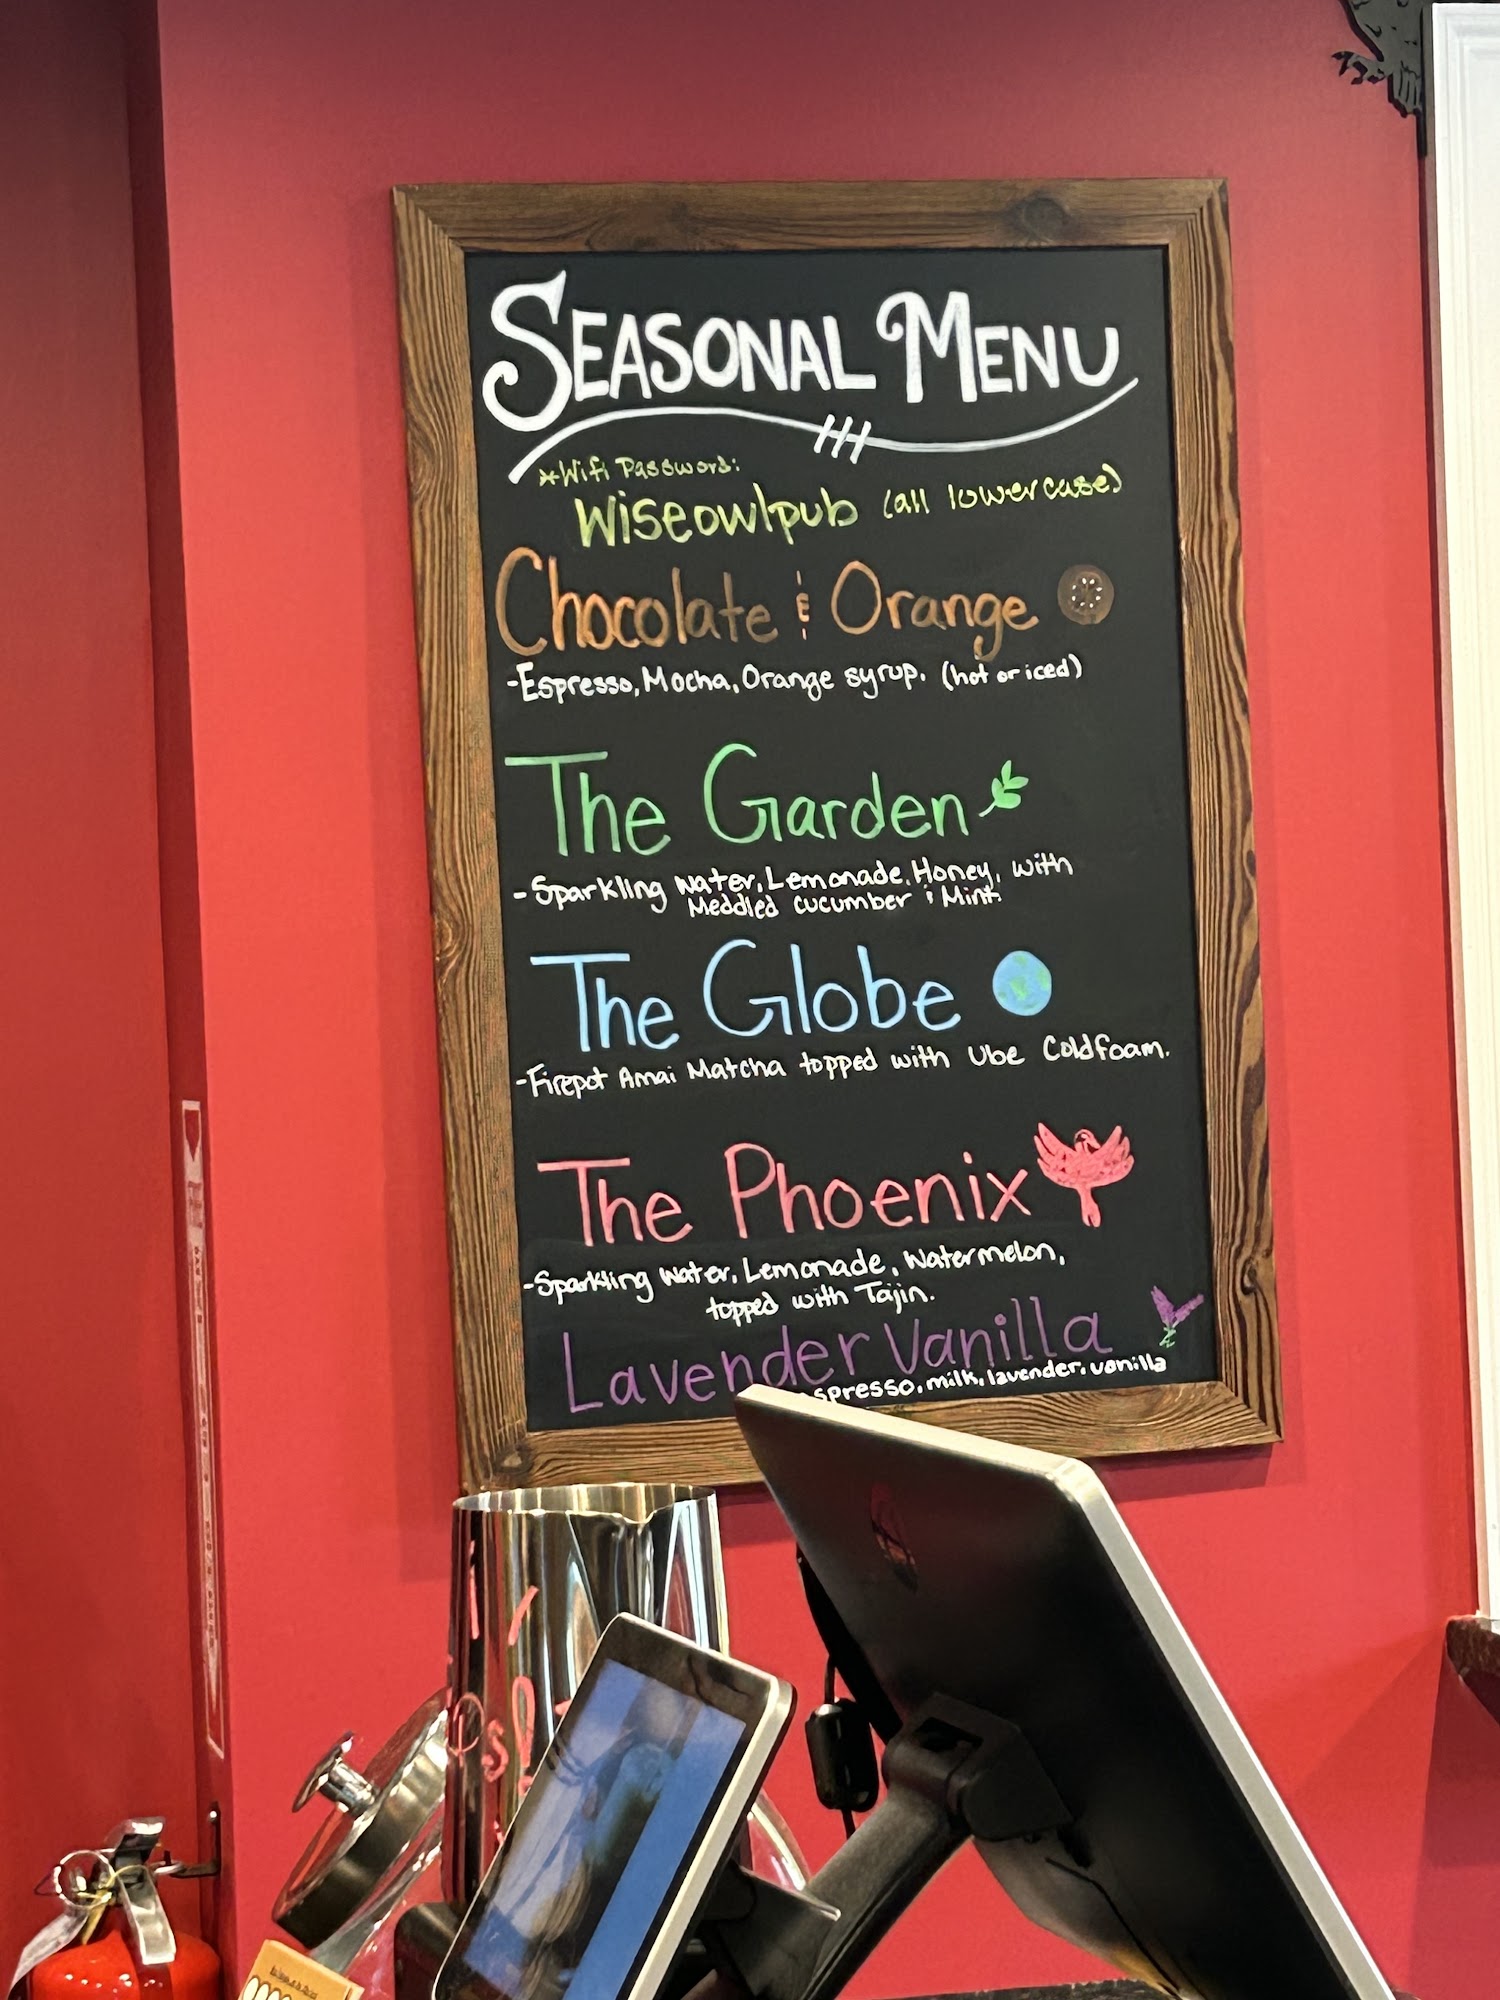 SEASONAL MENU
*Wifi Password:
Wiseowlpub (all lowercase)
Chocolate & Orange
-Espresso, Mocha, Orange syrup. (hot or iced)
The Garden
-Sparkling Water, Lemonade, Honey, with
Meddled cucumber & Mint.
The Globe
-Firepot Amai Matcha topped with Ube Coldfoam.
The Phoenix
-Sparkling Water, Lemonade, Watermelon,
topped with Tajin.
Lavender Vanilla
spresso, milk, lavender, vanilla